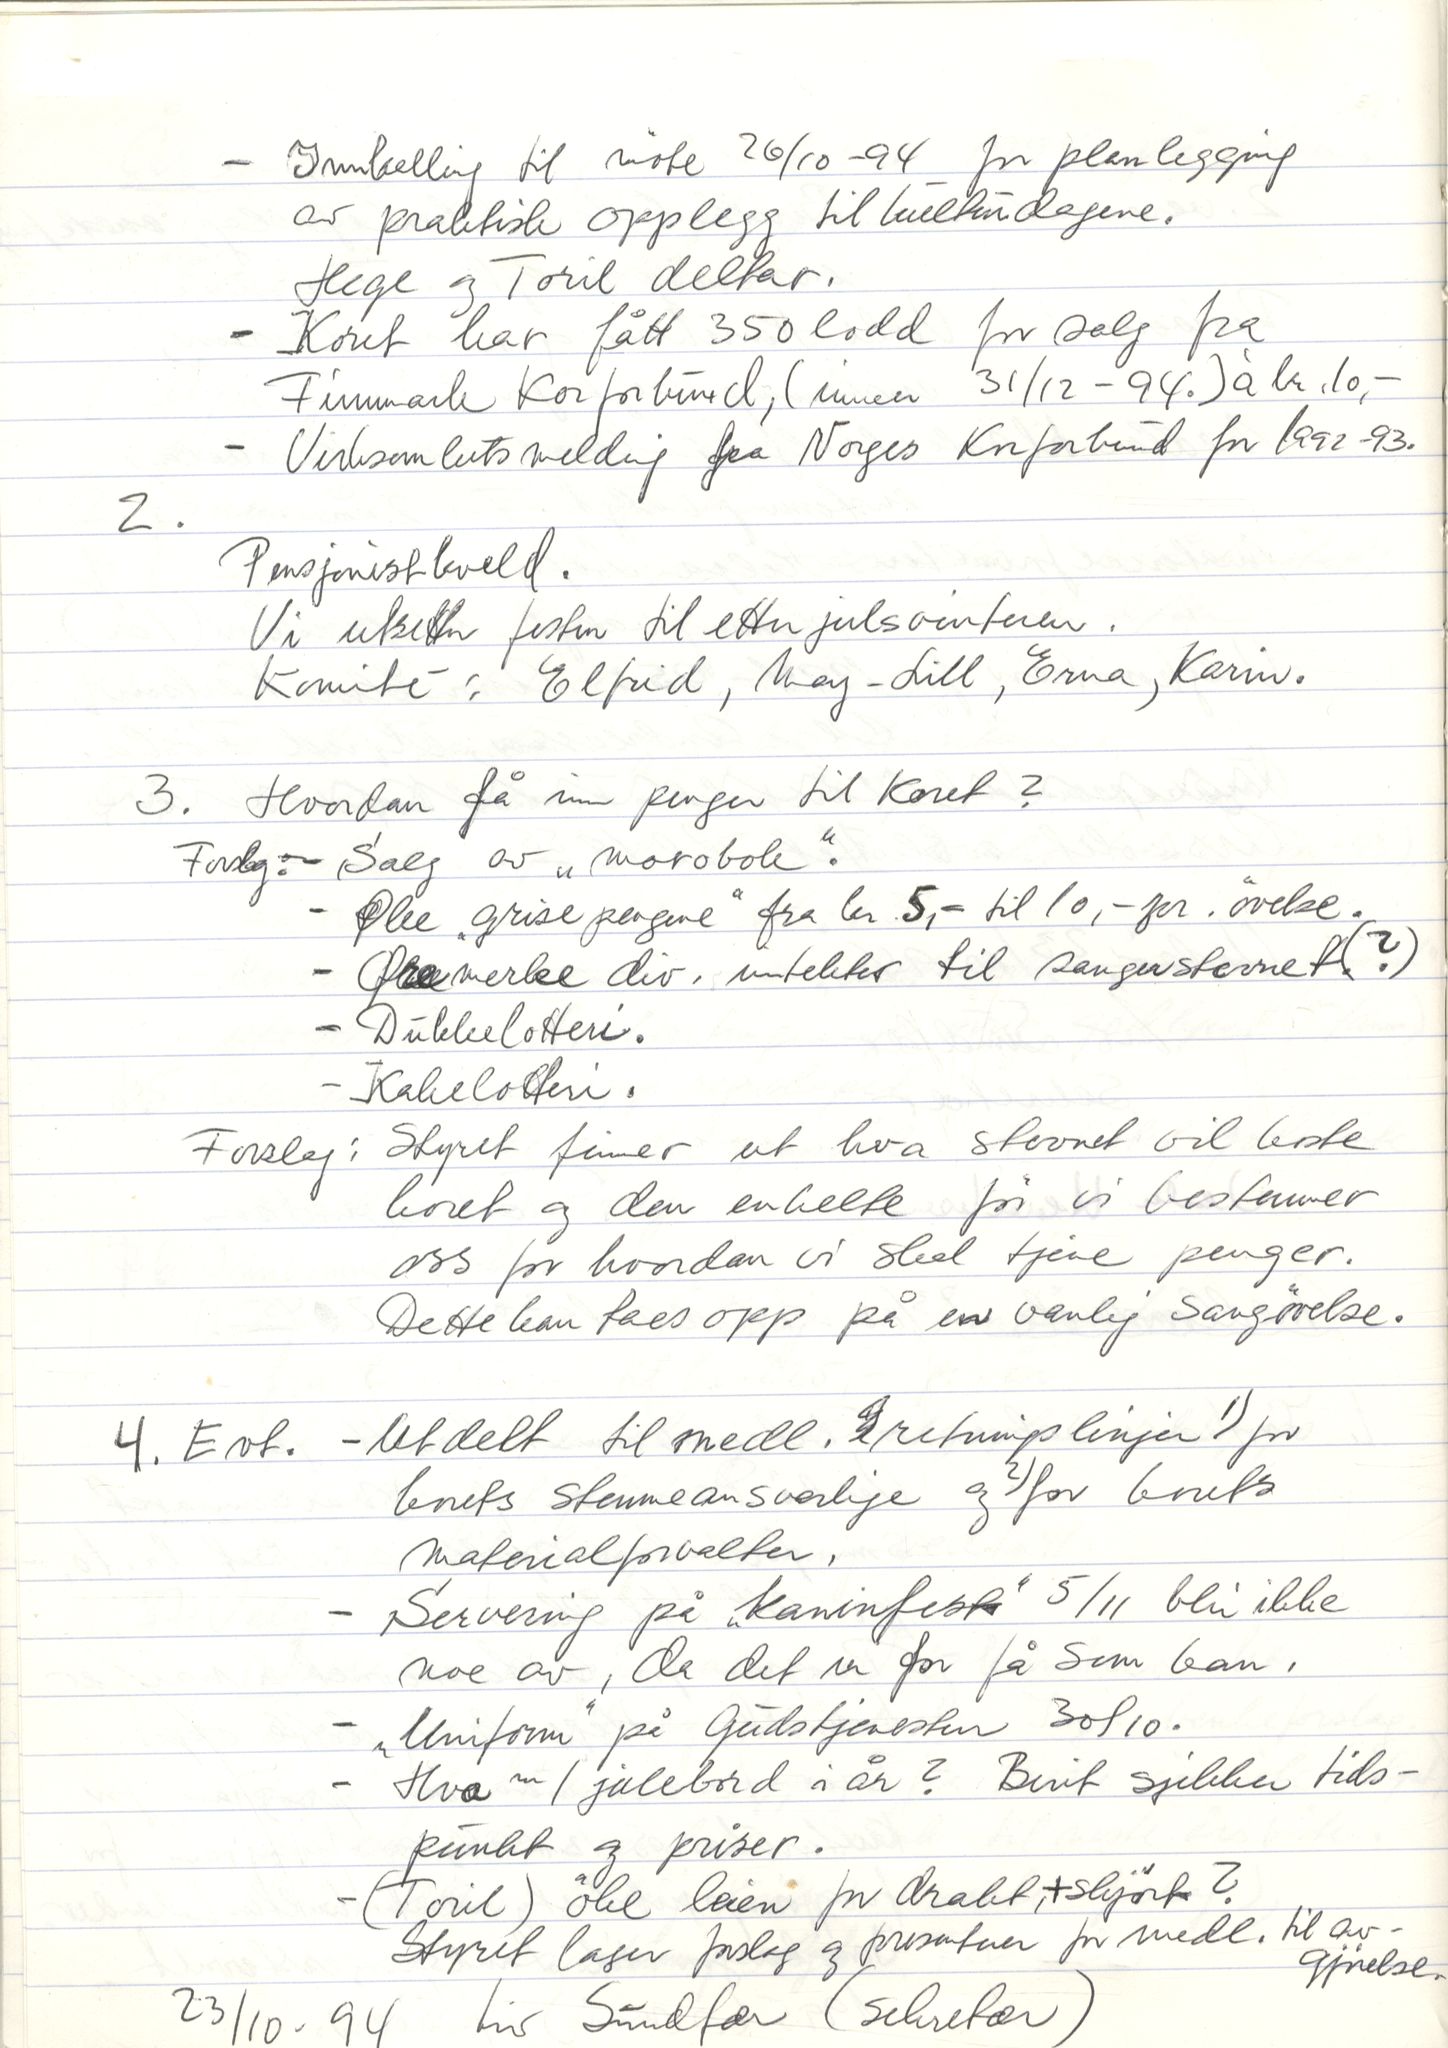 - Innkalling til møte 26/10-94 for planlegging
av praktisk opplegg til kulturdagene.
Hege og Toril deltar.
- Koret har fått 350 lodd for salg fra
Finnmark Korforbund, (innen 31/12-94.) à kr. 10,-
- Virksomhetsmelding fra Norges Korforbund for 1992-93.
2.
Pensjonistkveld.
Vi utsetter festen til etterjulsvinteren.
Komité: Elfrid, May-Lill, Erna, Karin.
3. Hvordan få inn penger til Koret?
Forslag: - Salg av „morobok".
- Øke „grisepengene" fra kr 5,- til 10,- pr. øvelse.
- Øremerke div. inntekter til sangerstevnet. (?)
- Dukkelotteri.
- Kakelotteri.
Forslag: Styret finner ut hva stevnet vil koste
koret og den enkelte før vi bestemmer
oss for hvordan vi skal tjene penger.
Dette kan taes opp på en vanlig sangøvelse.
4. Evt. - Utdelt til medl. retningslinjer 1) for
korets stemmeansvarlige og 2) for korets
materialforvalter.
- Servering på „Kaninfest" 5/11 blir ikke
noe av, da det er for få som kan.
- „Uniform" på Gudstjenesten 30/10.
- Hva m/ julebord i år? Berit sjekker tids-
punkt og priser.
- (Toril) øke leien for drakt, + skjørt?
Styret lager forslag og presenterer for medl. til av-
gjørelse.
23/10-94 Liv Sundfær (sekretær)